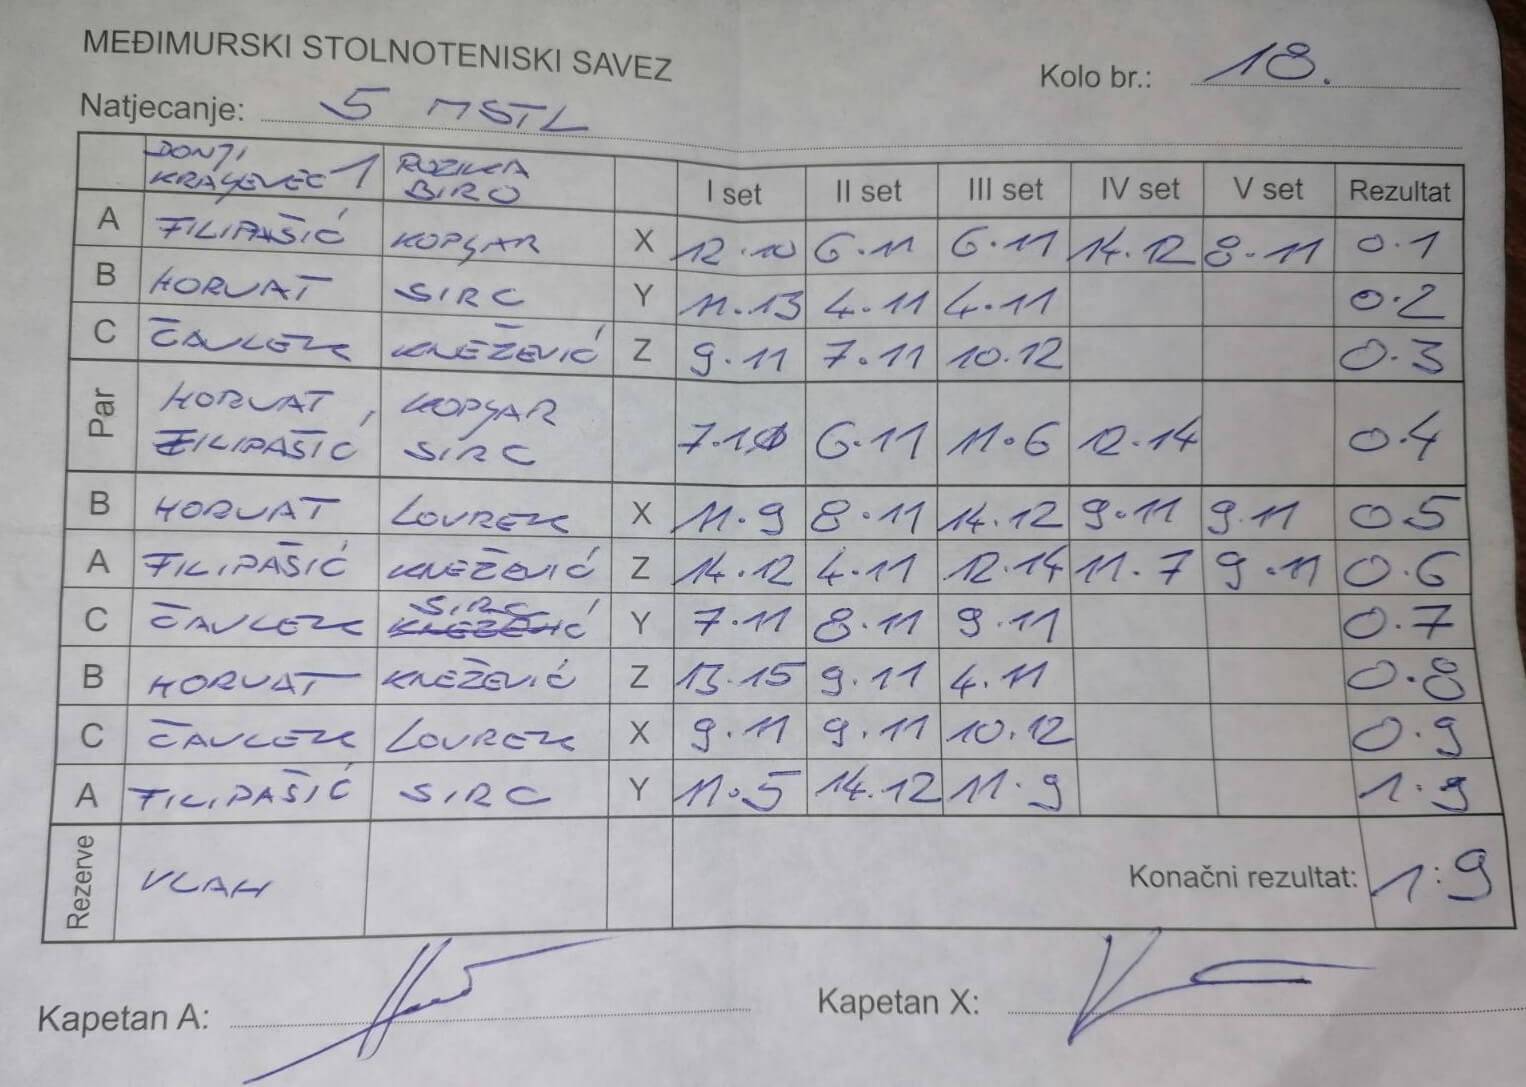 MEĐIMURSKI STOLNOTENISKI SAVEZ
Kolo br.: 18.
Natjecanje: 5 MSTL
DONJI KRALJEVEC 1 ROZIKA BIRO I set II set III set IV set V set Rezultat
A FILIPAŠIĆ KOPJAR X 12.10 6.11 6.11 14.12 8.11 0.1
B HORVAT SIRC Y 11.13 4.11 4.11 0.2
C ČAVLEK KNEŽEVIĆ Z 9.11 7.11 10.12 0.3
Par HORVAT, FILIPAŠIĆ KOPJAR SIRC 7.11 6.11 11.6 12.14 0.4
B HORVAT LOVREK X 11.9 8.11 14.12 9.11 9.11 0.5
A FILIPAŠIĆ KNEŽEVIĆ Z 14.12 4.11 12.14 11.7 9.11 0.6
C ČAVLEK SIRC KNEŽEVIĆ Y 7.11 8.11 9.11 0.7
B HORVAT KNEŽEVIĆ Z 13.15 9.11 4.11 0.8
C ČAVLEK LOVREK X 9.11 9.11 10.12 0.9
A FILIPAŠIĆ SIRC Y 11.5 14.12 11.9 1.9
Rezerve VLAH Konačni rezultat: 1:9
Kapetan A: Kapetan X: